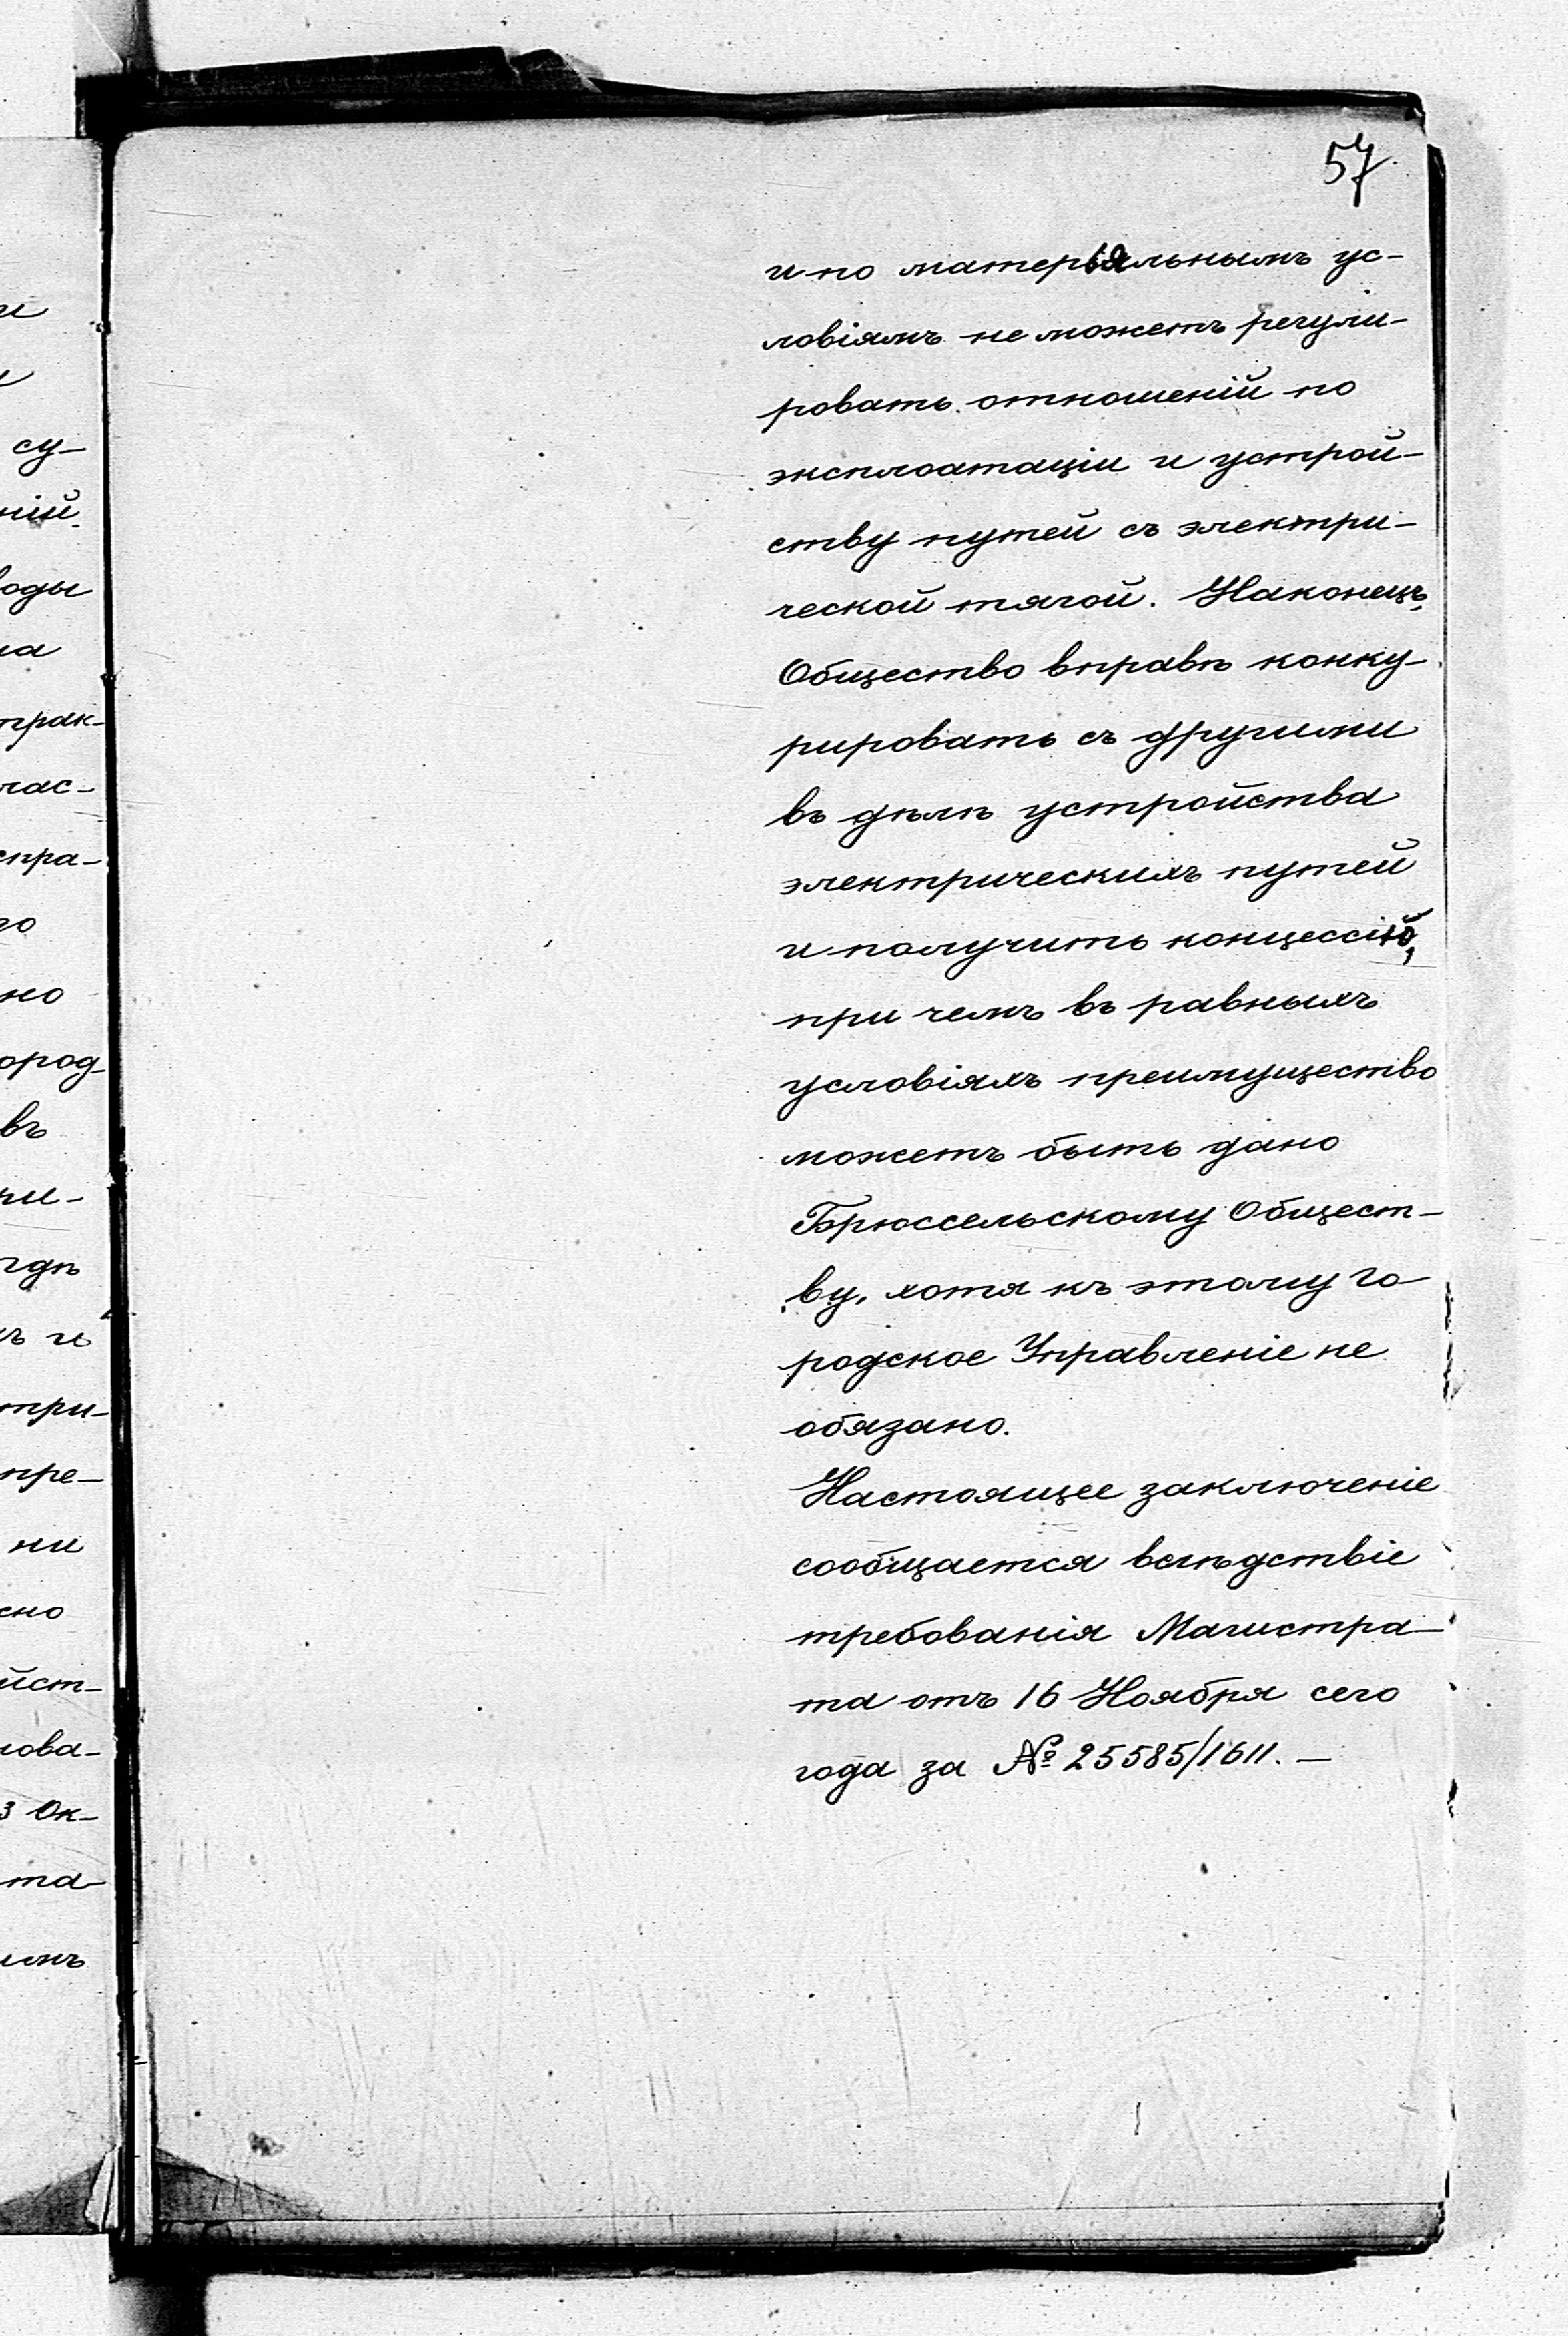 57
и по матерьяльнымъ ус-
ловіямъ не можетъ регули-
ровать отношеній по
эксплоатаціи и устрой-
ству путей съ электри-
ческой тягой. Наконецъ,
Общество вправѣ конку-
рировать съ другими
въ дѣлѣ устройства
электрическихъ путей
и получить концессію,
при чемъ въ равныхъ
условіяхъ преимущество
можетъ быть дано
Брюссельскому Общест-
ву, хотя къ этому го-
родское Управленіе не
обязано.
Настоящее заключеніе
сообщается вслѣдствіе
требованія Магистра-
та отъ 16 Ноября сего
года за № 25585/1611. —